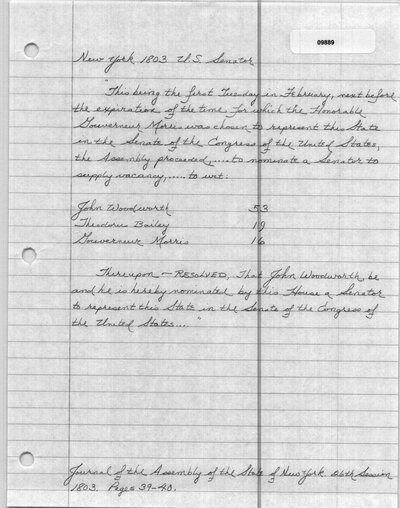 09889
New York 1803 U.S. Senator
"This being the first Tuesday in February, next before
the expiration of the time for which the Honorable
Gouverneur Morris was chosen to represent this State
in the Senate of the Congress of the United States,
the Assembly proceeded,....to nominate a Senator to
supply vacancy.....to wit:
John Woodworth 53
Theodorus Bailey 19
Gouverneur Morris 16
Thereupon — RESOLVED, That John Woodworth be
and he is hereby nominated by this House a Senator
to represent this State in the Senate of the Congress of
the United States...."
Journal of the Assembly of the State of New York. 26th Session
1803. Pages 39-40.